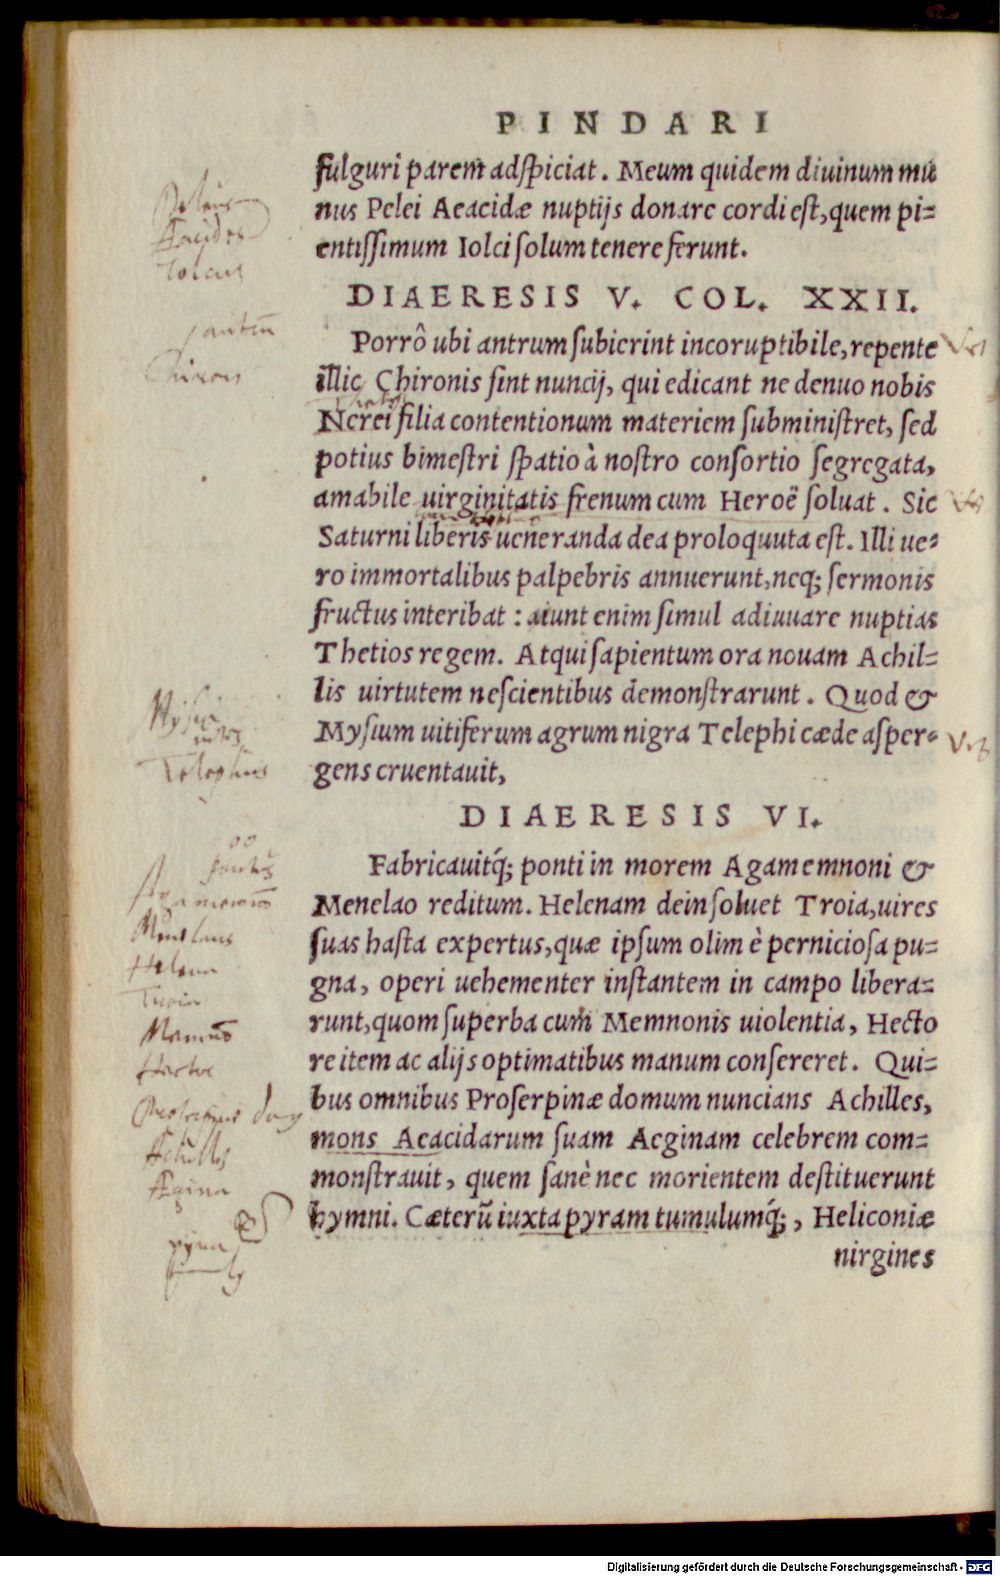 PINDARI
fulguri parem adspiciat. Meum quidem diuinum mu
nus Pelei Aeacidæ nuptijs donare cordi est, quem pi=
entissimum Iolci solum tenere ferunt.
DIAERESIS V. COL. XXII.
Porrô ubi antrum subierint incoruptibile, repente
illic Chironis sint nuncij, qui edicant ne denuo nobis
Nerei filia contentionum materiem subministret, sed
potius bimestri spatio à nostro consortio segregata,
amabile uirginitatis frenum cum Heroë soluat. Sic
Saturni liberis ueneranda dea proloquuta est. Illi ue=
ro immortalibus palpebris annuerunt, neq; sermonis
fructus interibat : aiunt enim simul adiuuare nuptias
Thetios regem. Atqui sapientum ora nouam Achil=
lis uirtutem nescientibus demonstrarunt. Quod &
Mysium uitiferum agrum nigra Telephi cæde asper=
gens cruentauit,
DIAERESIS VI.
Fabricauitq́; ponti in morem Agamemnoni &
Menelao reditum. Helenam dein soluet Troia, uires
suas hasta expertus, quæ ipsum olim è perniciosa pu=
gna, operi uehementer instantem in campo libera=
runt, quom superba cum Memnonis uiolentia, Hecto
re item ac alijs optimatibus manum consereret. Qui=
bus omnibus Proserpinæ domum nuncians Achilles,
mons Aeacidarum suam Aeginam celebrem com=
monstrauit, quem sanè nec morientem destituerunt
hymni. Cæterũ iuxta pyram tumulumq́;, Heliconiæ
nirgines
Telephus
Menelaus
Helena
Hector
Achilles
Ægina
pyra
Digitalisierung gefördert durch die Deutsche Forschungsgemeinschaft - DFG